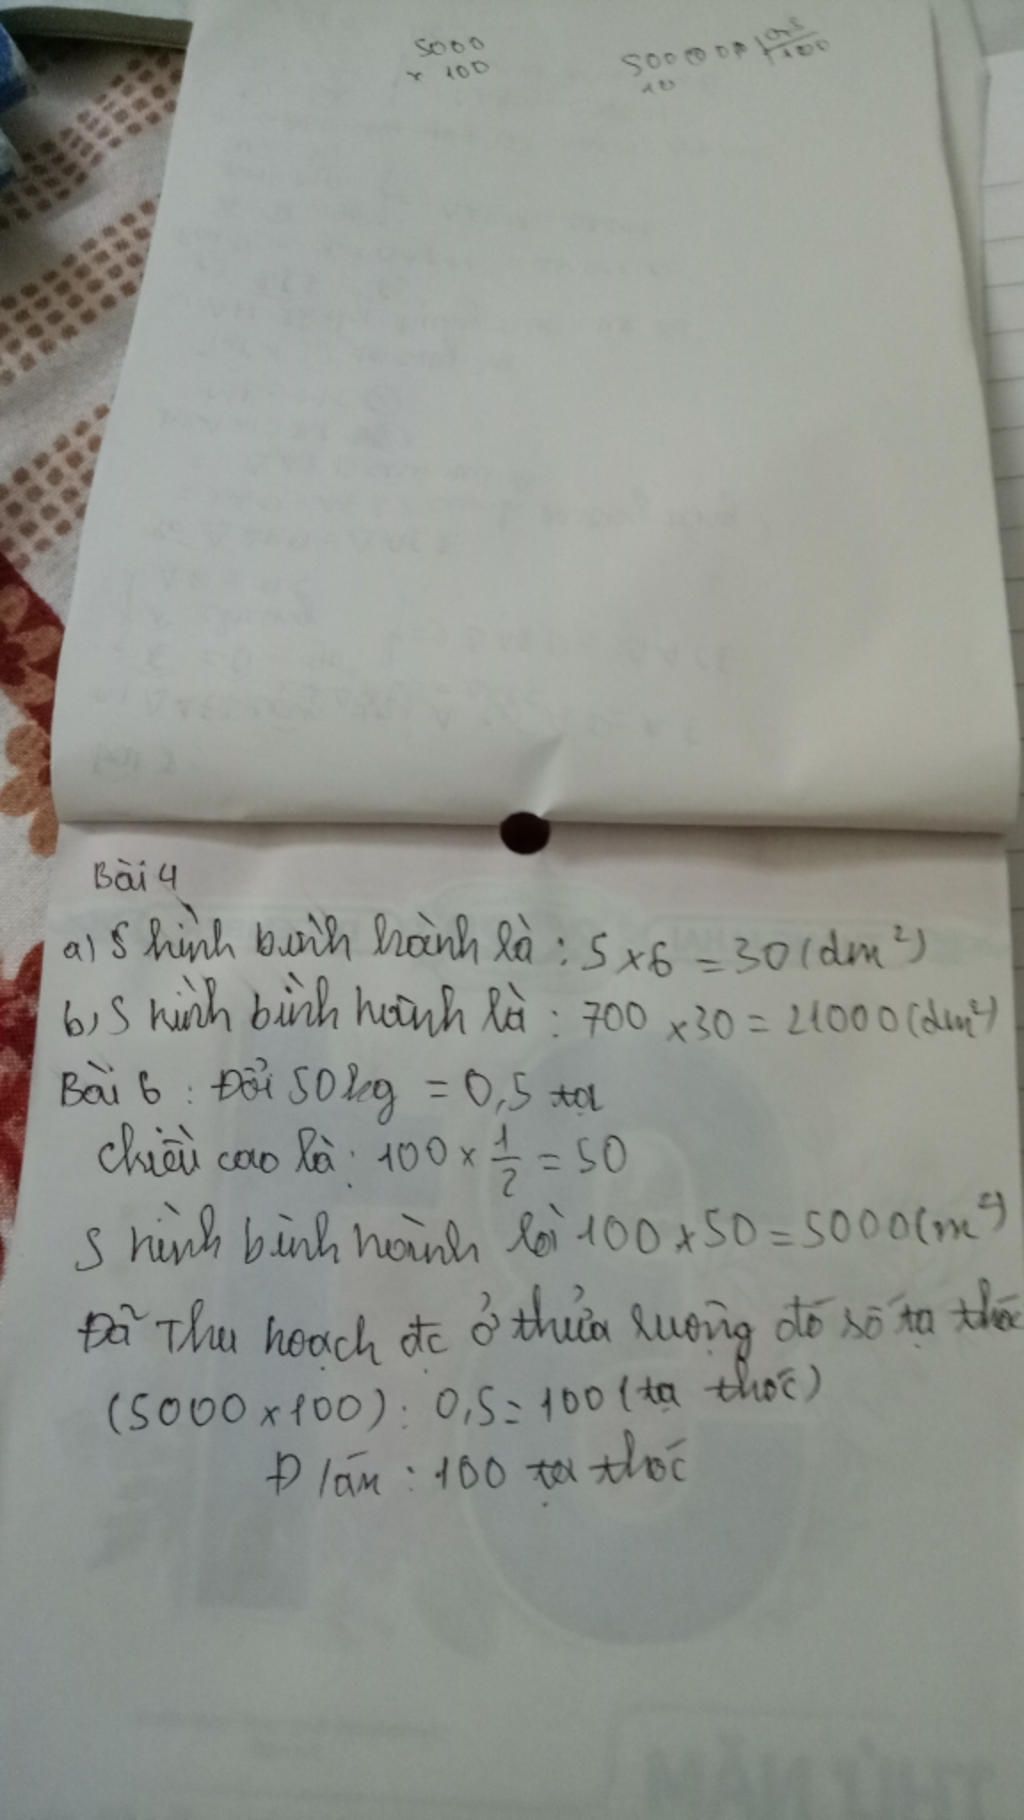 5000
x 100
Bài 4
a) S hình bình hành là : 5 x 6 = 30 (dm²)
b, S hình bình hành là : 700 x 30 = 21000 (dm²)
Bài 6 : Đổi 50 kg = 0,5 tạ
chiều cao là : 100 x 1/2 = 50
S hình bình hành là 100 x 50 = 5000 (m²)
Đã Thu hoạch đc ở thửa ruộng đó số tạ thóc
(5000 x 100) : 0,5 = 100 (tạ thóc)
Đ/án : 100 tạ thóc